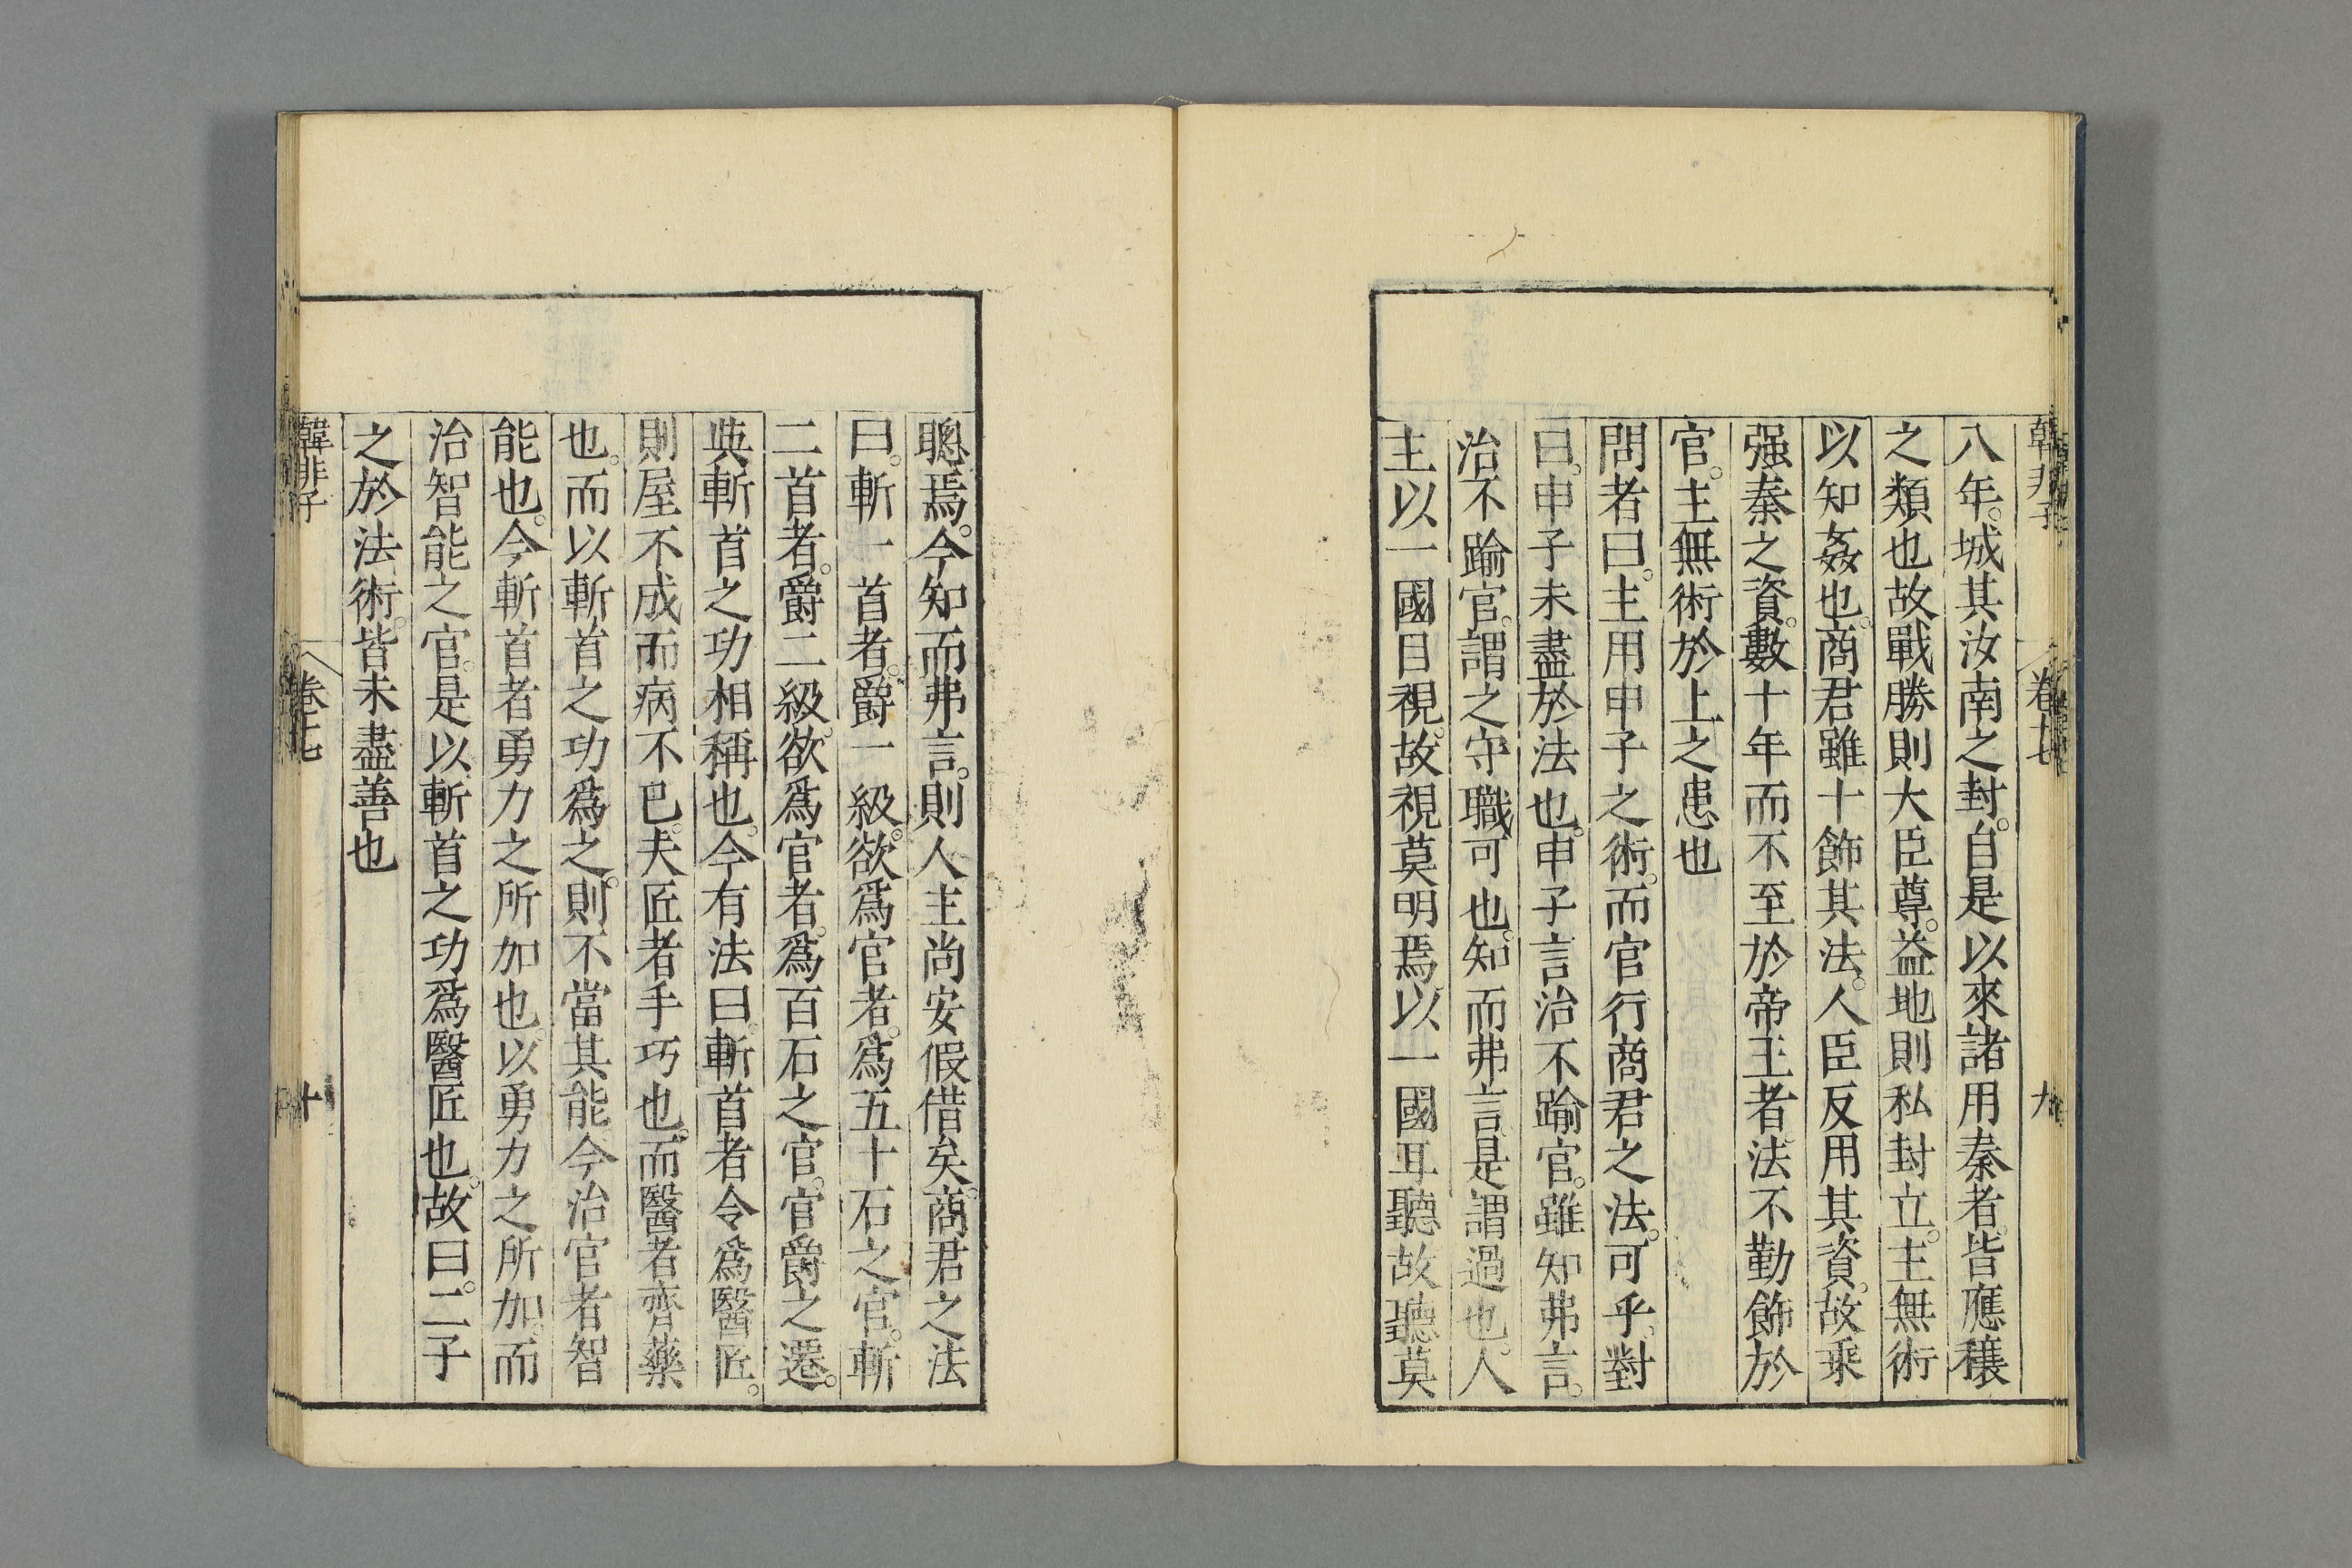 韓非子 卷十七 九
八年。城其汝南之封。自是以來諸用秦者。皆應穰
之類也故戰勝則大臣尊。益地則私封立。主無術
以知姦也。商君雖十飾其法。人臣反用其資。故乘
强秦之資。數十年而不至於帝王者。法不勤飾於
官。主無術於上之患也
問者曰。主用申子之術。而官行商君之法。可乎。對
曰。申子未盡於法也。申子言治不踰官。雖知弗言。
治不踰官。謂之守職可也。知而弗言是謂過也。人
主以一國目視。故視莫明焉。以一國耳聽故聽莫
聰焉。今知而弗言。則人主尚安假借矣。商君之法
曰。斬一首者。爵一級。欲爲官者。爲五十石之官。斬
二首者。爵二級。欲爲官者。爲百石之官。官爵之遷。
與斬首之功相稱也。今有法曰。斬首者令爲醫匠。
則屋不成而病不已。夫匠者手巧也。而醫者齊藥
也。而以斬首之功爲之。則不當其能今治官者智
能也。今斬首者勇力之所加也。以勇力之所加。而
治智能之官。是以斬首之功爲醫匠也。故曰。二子
之於法術。皆未盡善也
韓非子 卷十七 十